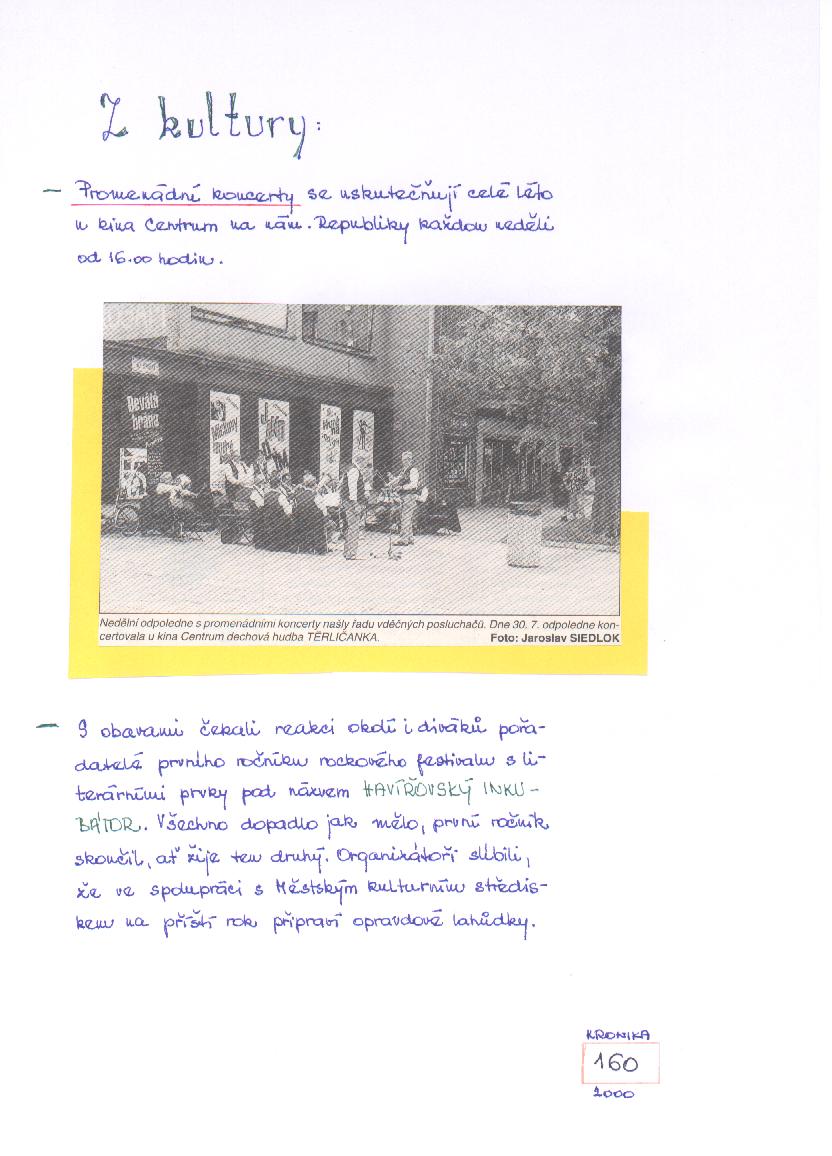 Z kultury:
– Promenádní koncerty se uskutečňují celé léto
u kina Centrum na nám. Republiky každou neděli
od 16.00 hodin.
Devátá
brána
Nedělní odpoledne s promenádními koncerty našly řadu vděčných posluchačů. Dne 30. 7. odpoledne kon-
certovala u kina Centrum dechová hudba TĚRLIČANKA.
Foto: Jaroslav SIEDLOK
– S obavami čekali reakci okolí i diváků pořa-
datelé prvního ročníku rockového festivalu s li-
terárními prvky pod názvem HAVÍŘOVSKÝ INKU-
BÁTOR. Všechno dopadlo jak mělo, první ročník
skončil, ať žije ten druhý. Organizátoři slíbili,
že ve spolupráci s Městským kulturním středis-
kem na příští rok připraví opravdové lahůdky.
KRONIKA
160
2000